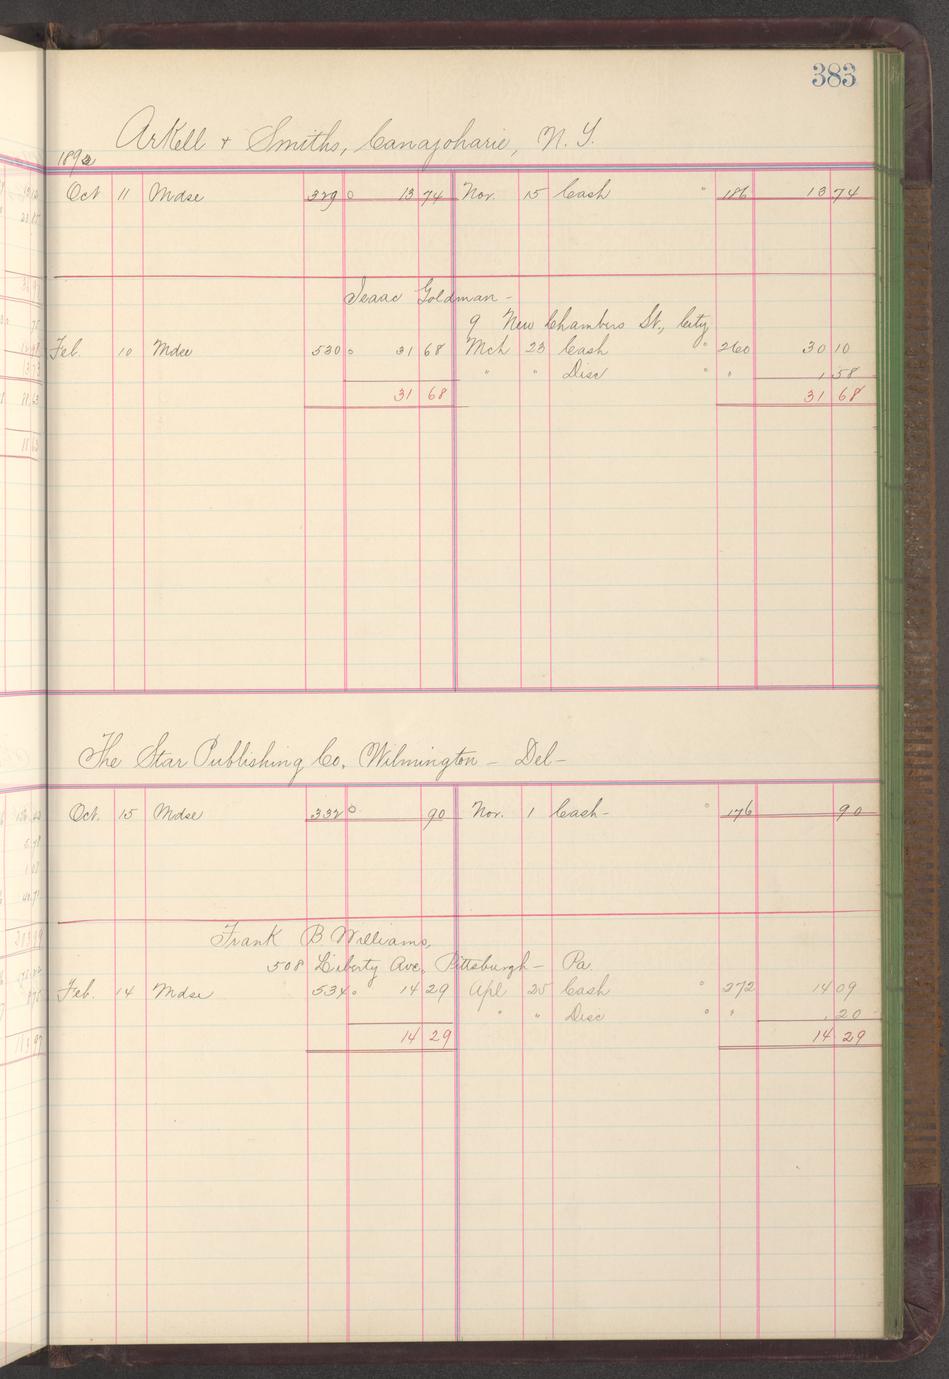 383
Arkell + Smiths, Canajoharie, N. Y.
Oct 11 Mdse 329 13 74 Nov. 15 Cash " 186 13 74
Isaac Goldman -
9 New Chambers St., City
Feb. 10 Mdse 530 31 68 Mch 23 Cash " 260 30 10
" " Disc " " 1 58
31 68 31 68
The Star Publishing Co. Wilmington - Del -
Oct. 15 Mdse 332 90 Nov. 1 Cash - " 176 90
Frank B Williams,
508 Liberty Ave, Pittsburgh - Pa.
Feb. 14 Mdse 534 14 29 Apl 25 Cash " 272 14 09
" " Disc " " . 20
14 29 14 29